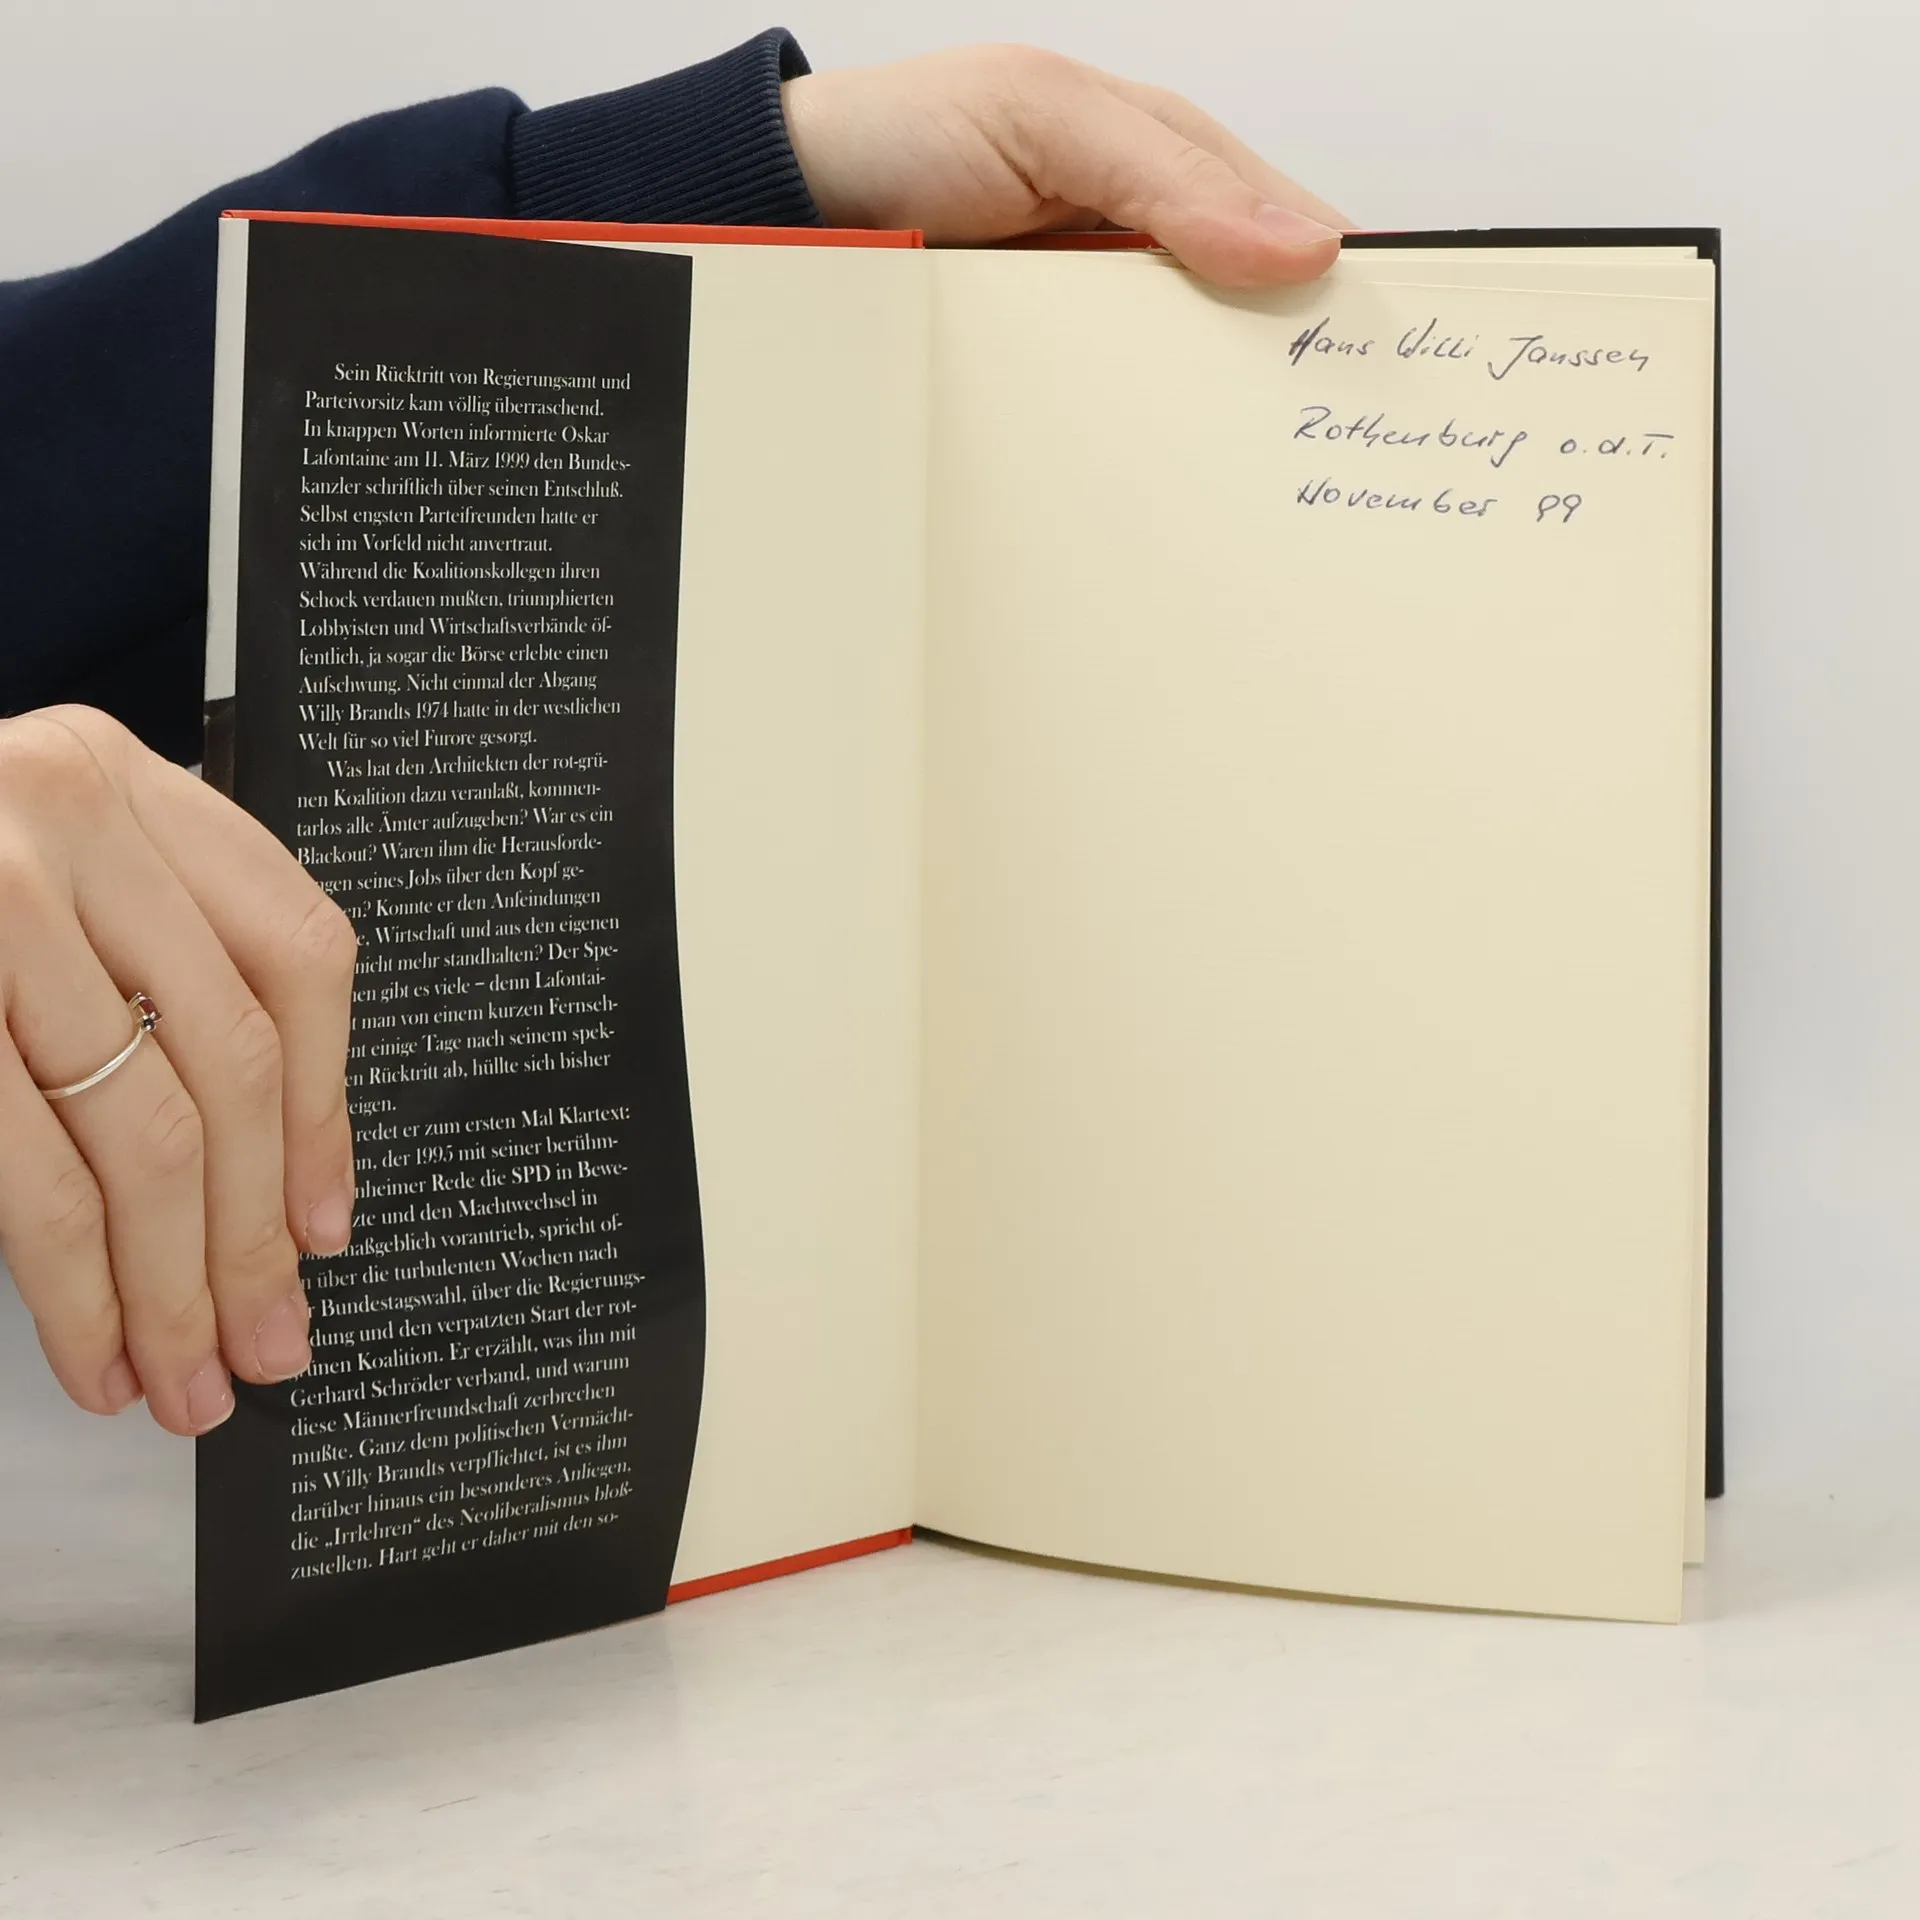 Sein Rücktritt von Regierungsamt und
Parteivorsitz kam völlig überraschend.
In knappen Worten informierte Oskar
Lafontaine am 11. März 1999 den Bundes-
kanzler schriftlich über seinen Entschluß.
Selbst engsten Parteifreunden hatte er
sich im Vorfeld nicht anvertraut.
Während die Koalitionskollegen ihren
Schock verdauen mußten, triumphierten
Lobbyisten und Wirtschaftsverbände öf-
fentlich, ja sogar die Börse erlebte einen
Aufschwung. Nicht einmal der Abgang
Willy Brandts 1974 hatte in der westlichen
Welt für so viel Furore gesorgt.
Was hat den Architekten der rot-grü-
nen Koalition dazu veranlaßt, kommen-
tarlos alle Ämter aufzugeben? War es ein
Blackout? Waren ihm die Herausforde-
ngen seines Jobs über den Kopf ge-
en? Konnte er den Anfeindungen
e, Wirtschaft und aus den eigenen
nicht mehr standhalten? Der Spe-
nen gibt es viele – denn Lafontai-
t man von einem kurzen Fernseh-
nt einige Tage nach seinem spek-
en Rücktritt ab, hüllte sich bisher
eigen.
redet er zum ersten Mal Klartext:
nn, der 1995 mit seiner berühm-
nheimer Rede die SPD in Bewe-
zte und den Machtwechsel in
maßgeblich vorantrieb, spricht of-
n über die turbulenten Wochen nach
r Bundestagswahl, über die Regierungs-
dung und den verpatzten Start der rot-
grünen Koalition. Er erzählt, was ihn mit
Gerhard Schröder verband, und warum
diese Männerfreundschaft zerbrechen
mußte. Ganz dem politischen Vermächt-
nis Willy Brandts verpflichtet, ist es ihm
darüber hinaus ein besonderes Anliegen,
die „Irrlehren“ des Neoliberalismus bloß-
zustellen. Hart geht er daher mit den so-
Hans Willi Janssen
Rothenburg o.d.T.
November 99